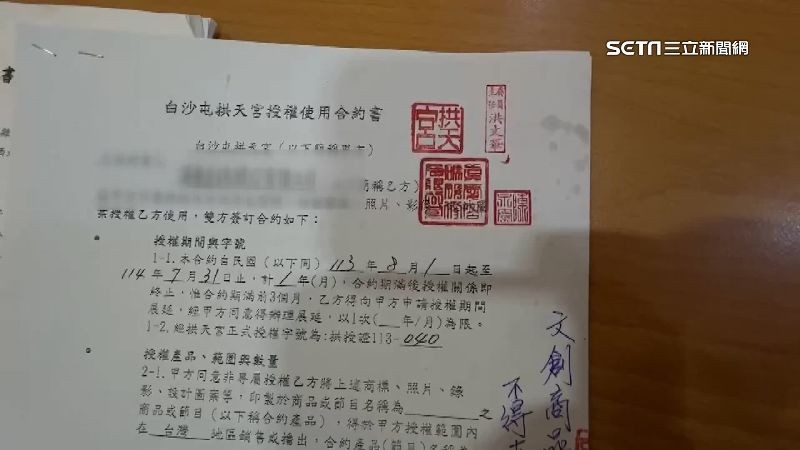 SETN 三立新聞網
白沙屯拱天宮授權使用合約書
拱天宮
白沙屯拱天宮(以下簡稱甲方)
簡稱乙方)
照片、影
案授權乙方使用,雙方簽訂合約如下:
授權期間與字號
1-1.本合約自民國(以下同)113年8月1日起至
114年7月31日止,計1年(月),合約期滿後授權關係即
終止,惟合約期滿前3個月,乙方得向甲方申請授權期間
展延,經甲方同意得辦理展延,以1次(__年/月)為限。
1-2.經拱天宮正式授權字號為:拱授證113-040
授權產品、範圍與數量
2-1.甲方同意非專屬授權乙方將上述商標、照片、錄
影、設計圖案等,印製於商品或節目名稱為________之
商品或節目(以下稱合約產品),得於甲方授權範圍內
在 台灣 地區銷售或播出,合約產品(節目)名稱為
文創商品
不得
書